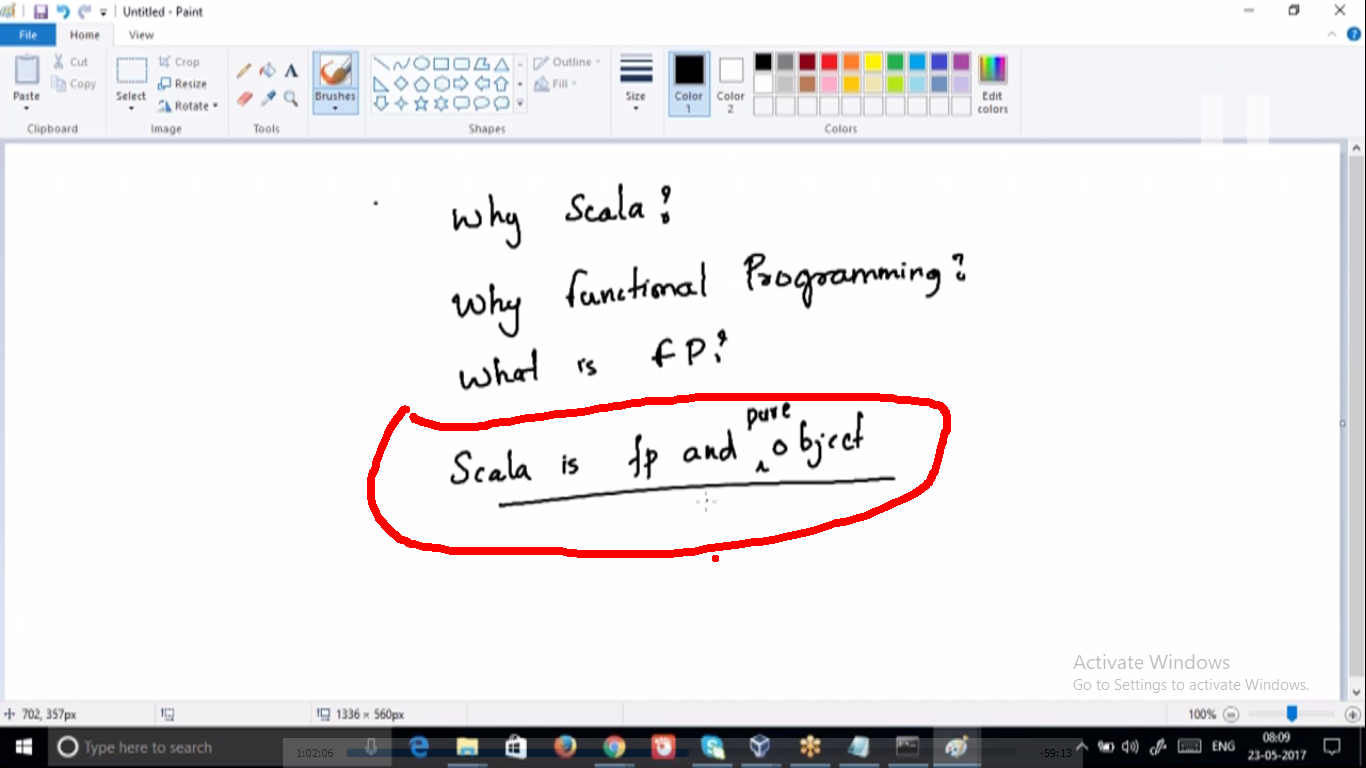 Untitled - Paint
File Home View
Paste Cut Copy Clipboard
Select Crop Resize Rotate Image
Tools
Brushes
Outline Fill Shapes
Size
Color 1 Color 2 Edit colors Colors
Why Scala?
Why functional Programming?
What is fP?
pure
Scala is fp and object
Activate Windows
Go to Settings to activate Windows.
702, 357px 1336 × 560px 100%
Type here to search 1:02:06 -59:13 ENG 08:09 23-05-2017